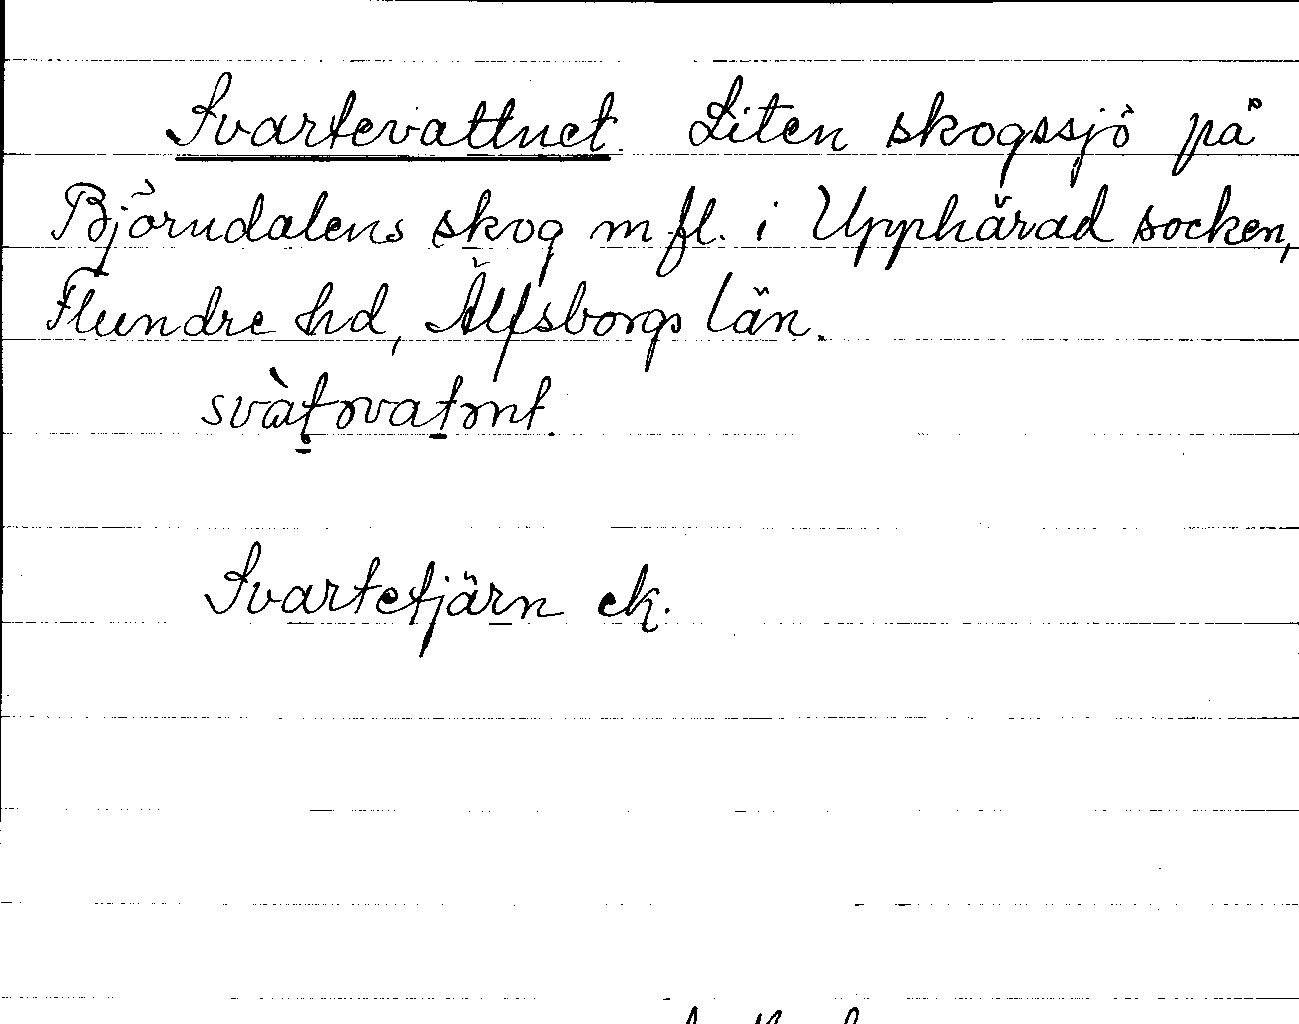 Svartevattnet. Liten skogssjö på
Björndalens skog m fl. i Upphärad socken,
Flundre hd, Älfsborgs län.
Svartetjärn ek.